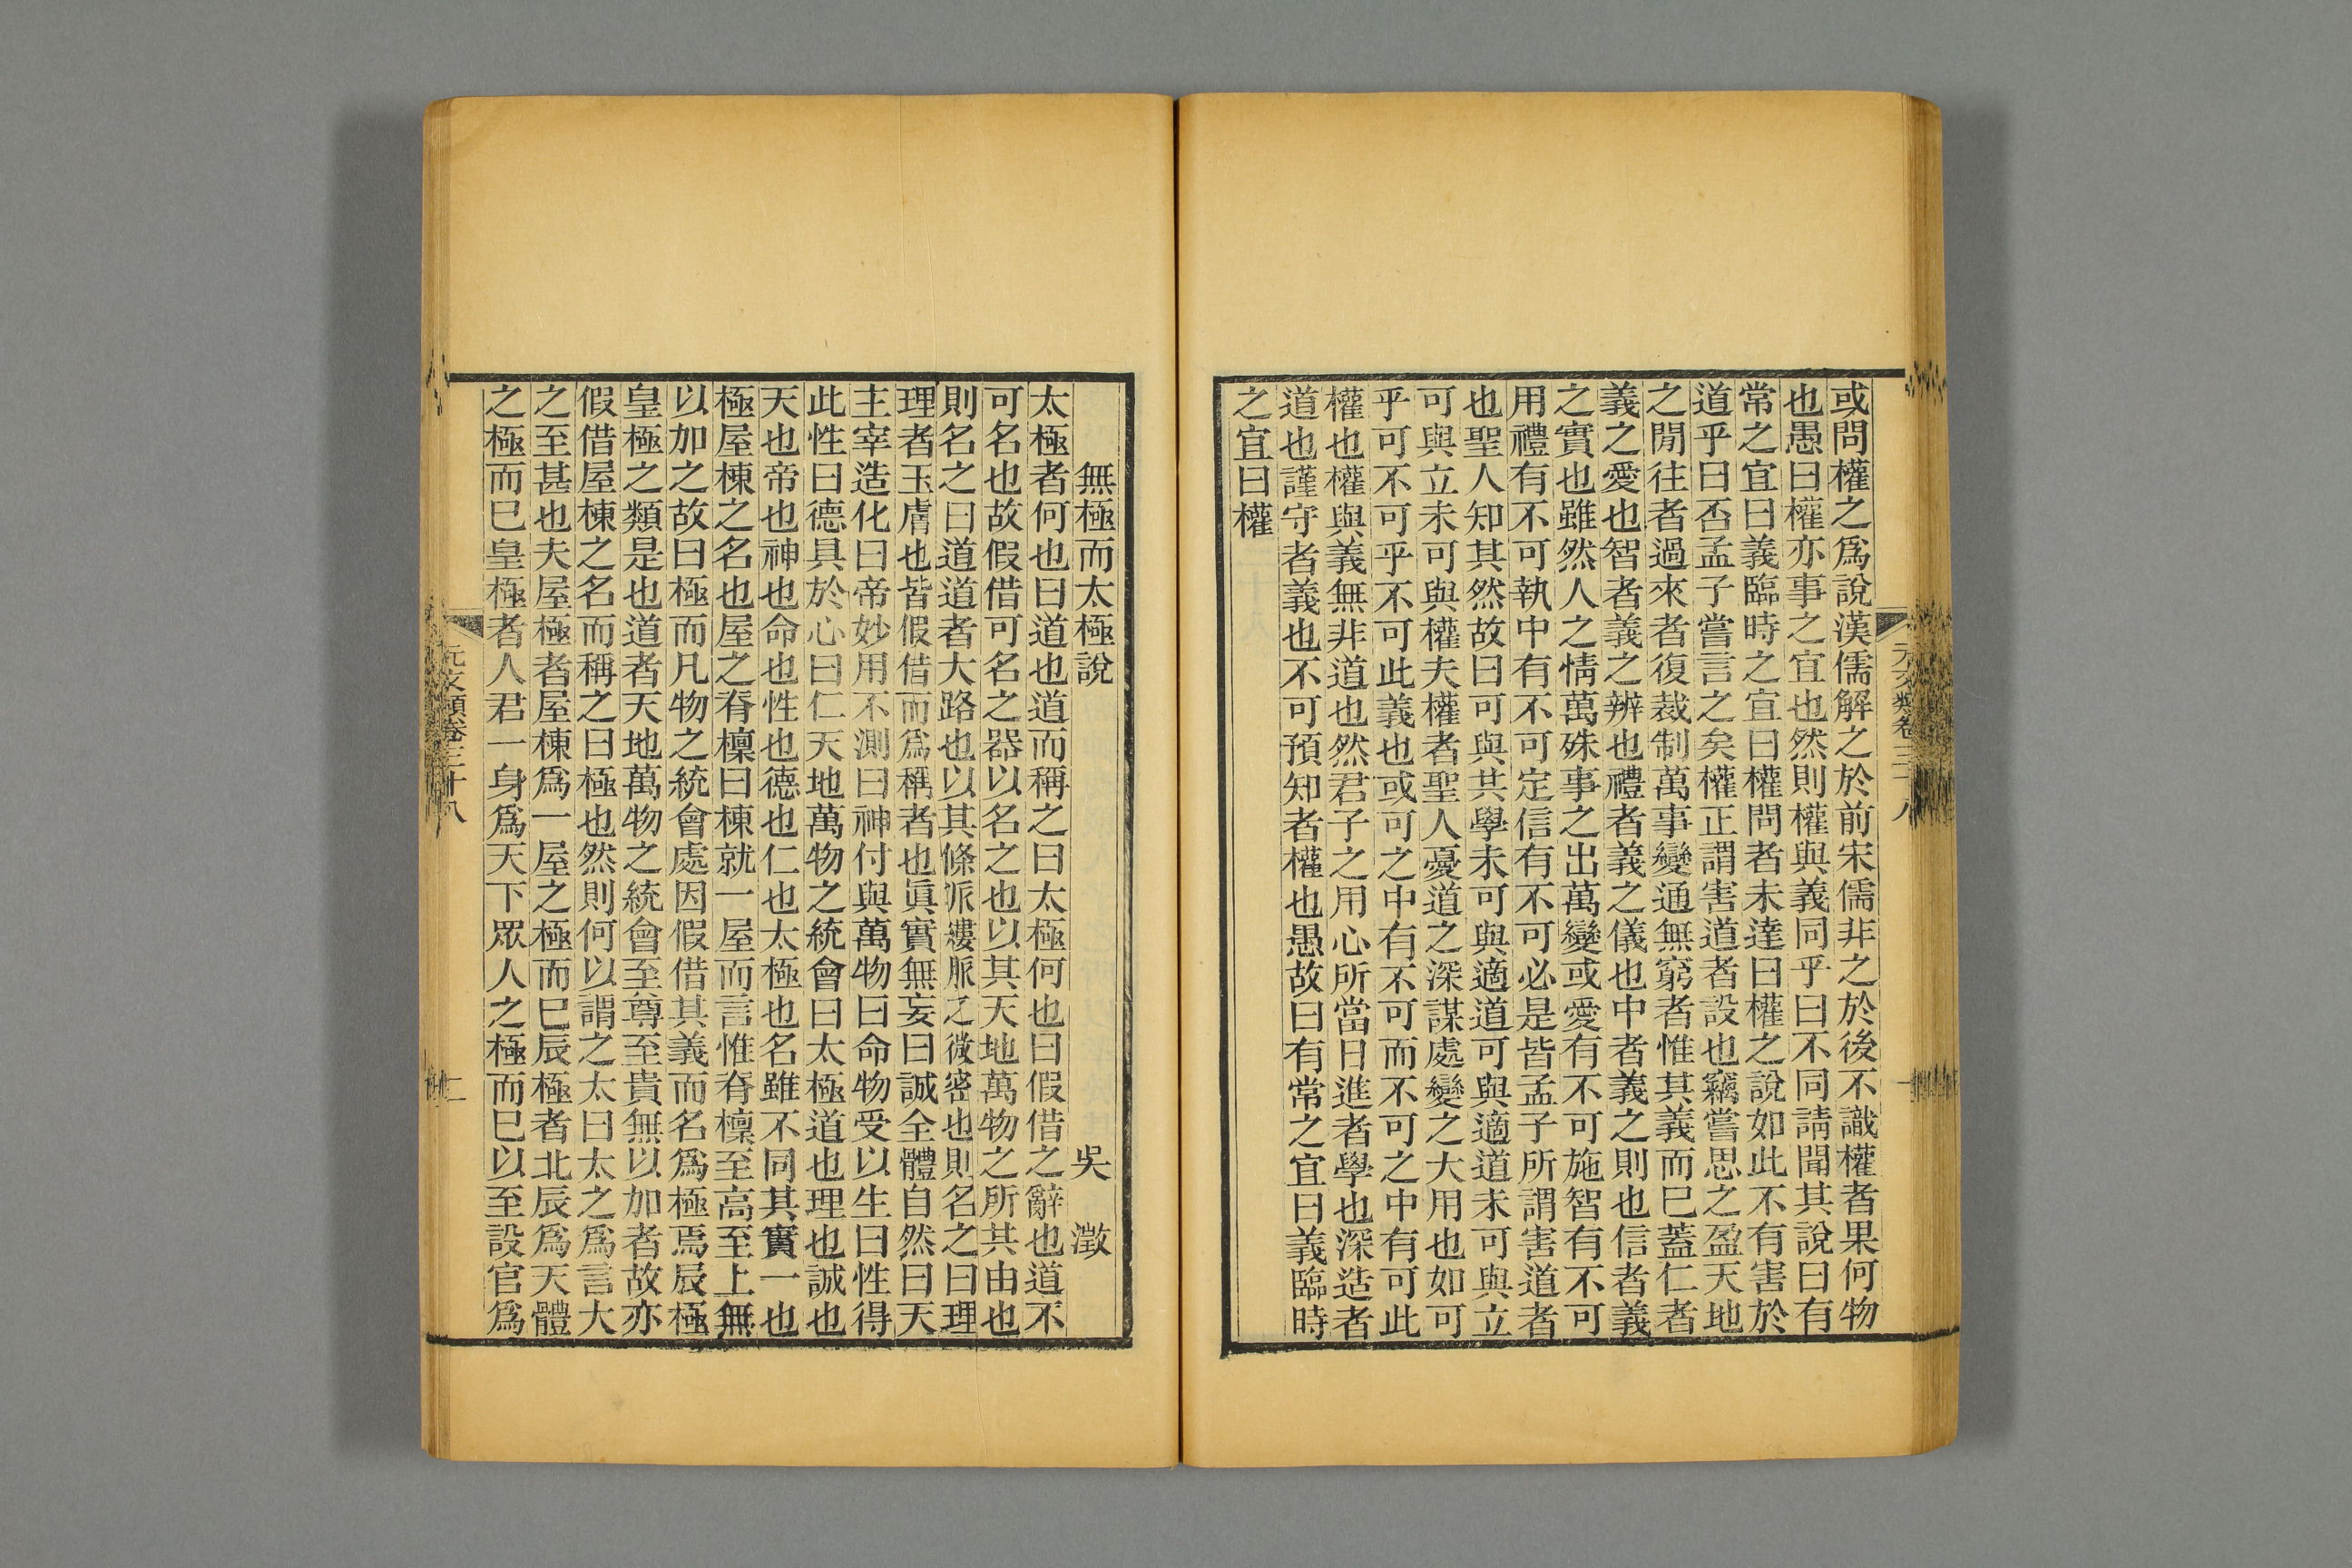 或問權之爲說漢儒解之於前宋儒非之於後不識權者果何物
也愚曰權亦事之宜也然則權與義同乎曰不同請聞其說曰有
常之宜曰義臨時之宜曰權問者未達曰權之說如此不有害於
道乎曰否孟子嘗言之矣權正謂害道者設也竊嘗思之盈天地
之閒往者過來者復裁制萬事變通無窮者惟其義而已蓋仁者
義之愛也智者義之辨也禮者義之儀也中者義之則也信者義
之實也雖然人之情萬殊事之出萬變或愛有不可施智有不可
用禮有不可執中有不可定信有不可必是皆孟子所謂害道者
也聖人知其然故曰可與共學未可與適道可與適道未可與立
可與立未可與權夫權者聖人憂道之深謀處變之大用也如可
乎可不可乎不可此義也或可之中有不可而不可之中有可此
權也權與義無非道也然君子之用心所當日進者學也深造者
道也謹守者義也不可預知者權也愚故曰有常之宜曰義臨時
之宜曰權
元文類卷三十八
無極而太極說 吳 澂
太極者何也曰道也道而稱之曰太極何也曰假借之辭也道不
可名也故假借可名之器以名之也以其天地萬物之所共由也
則名之曰道道者大路也以其條派縷脈之微密也則名之曰理
理者玉膚也皆假借而爲稱者也眞實無妄曰誠全體自然曰天
主宰造化曰帝妙用不測曰神付與萬物曰命物受以生曰性得
此性曰德具於心曰仁天地萬物之統會曰太極道也理也誠也
天也帝也神也命也性也德也仁也太極也名雖不同其實一也
極屋棟之名也屋之脊檁曰棟就一屋而言惟脊檁至高至上無
以加之故曰極而凡物之統會處因假借其義而名爲極焉辰極
皇極之類是也道者天地萬物之統會至尊至貴無以加者故亦
假借屋棟之名而稱之曰極也然則何以謂之太曰太之爲言大
之至甚也夫屋極者屋棟爲一屋之極而已辰極者北辰爲天體
之極而已皇極者人君一身爲天下眾人之極而已以至設官爲
元文類卷三十八
二